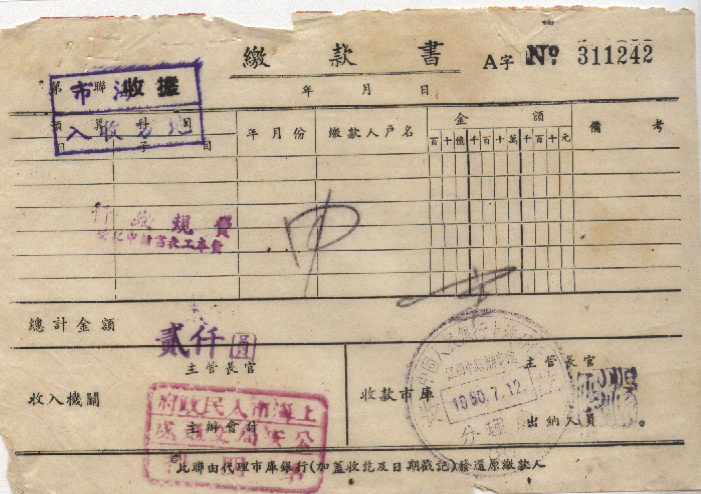 繳款書
A字 № 311242
第 聯 收據
年 月 日
市 海
入收方地
預算科目
年月份
繳款人戶名
金額
備考
目
子目
百十億千百十萬千百十元
行政規費
費本工表書請申記登
總計金額
貳仟圓
收入機關
主管長官
主辦會計
收款市庫
主管長官
出納人員
1950.7.12
分理處
上海市人民政府
此聯由代理市庫銀行(加蓋收訖及日期戳記)發還原繳款人